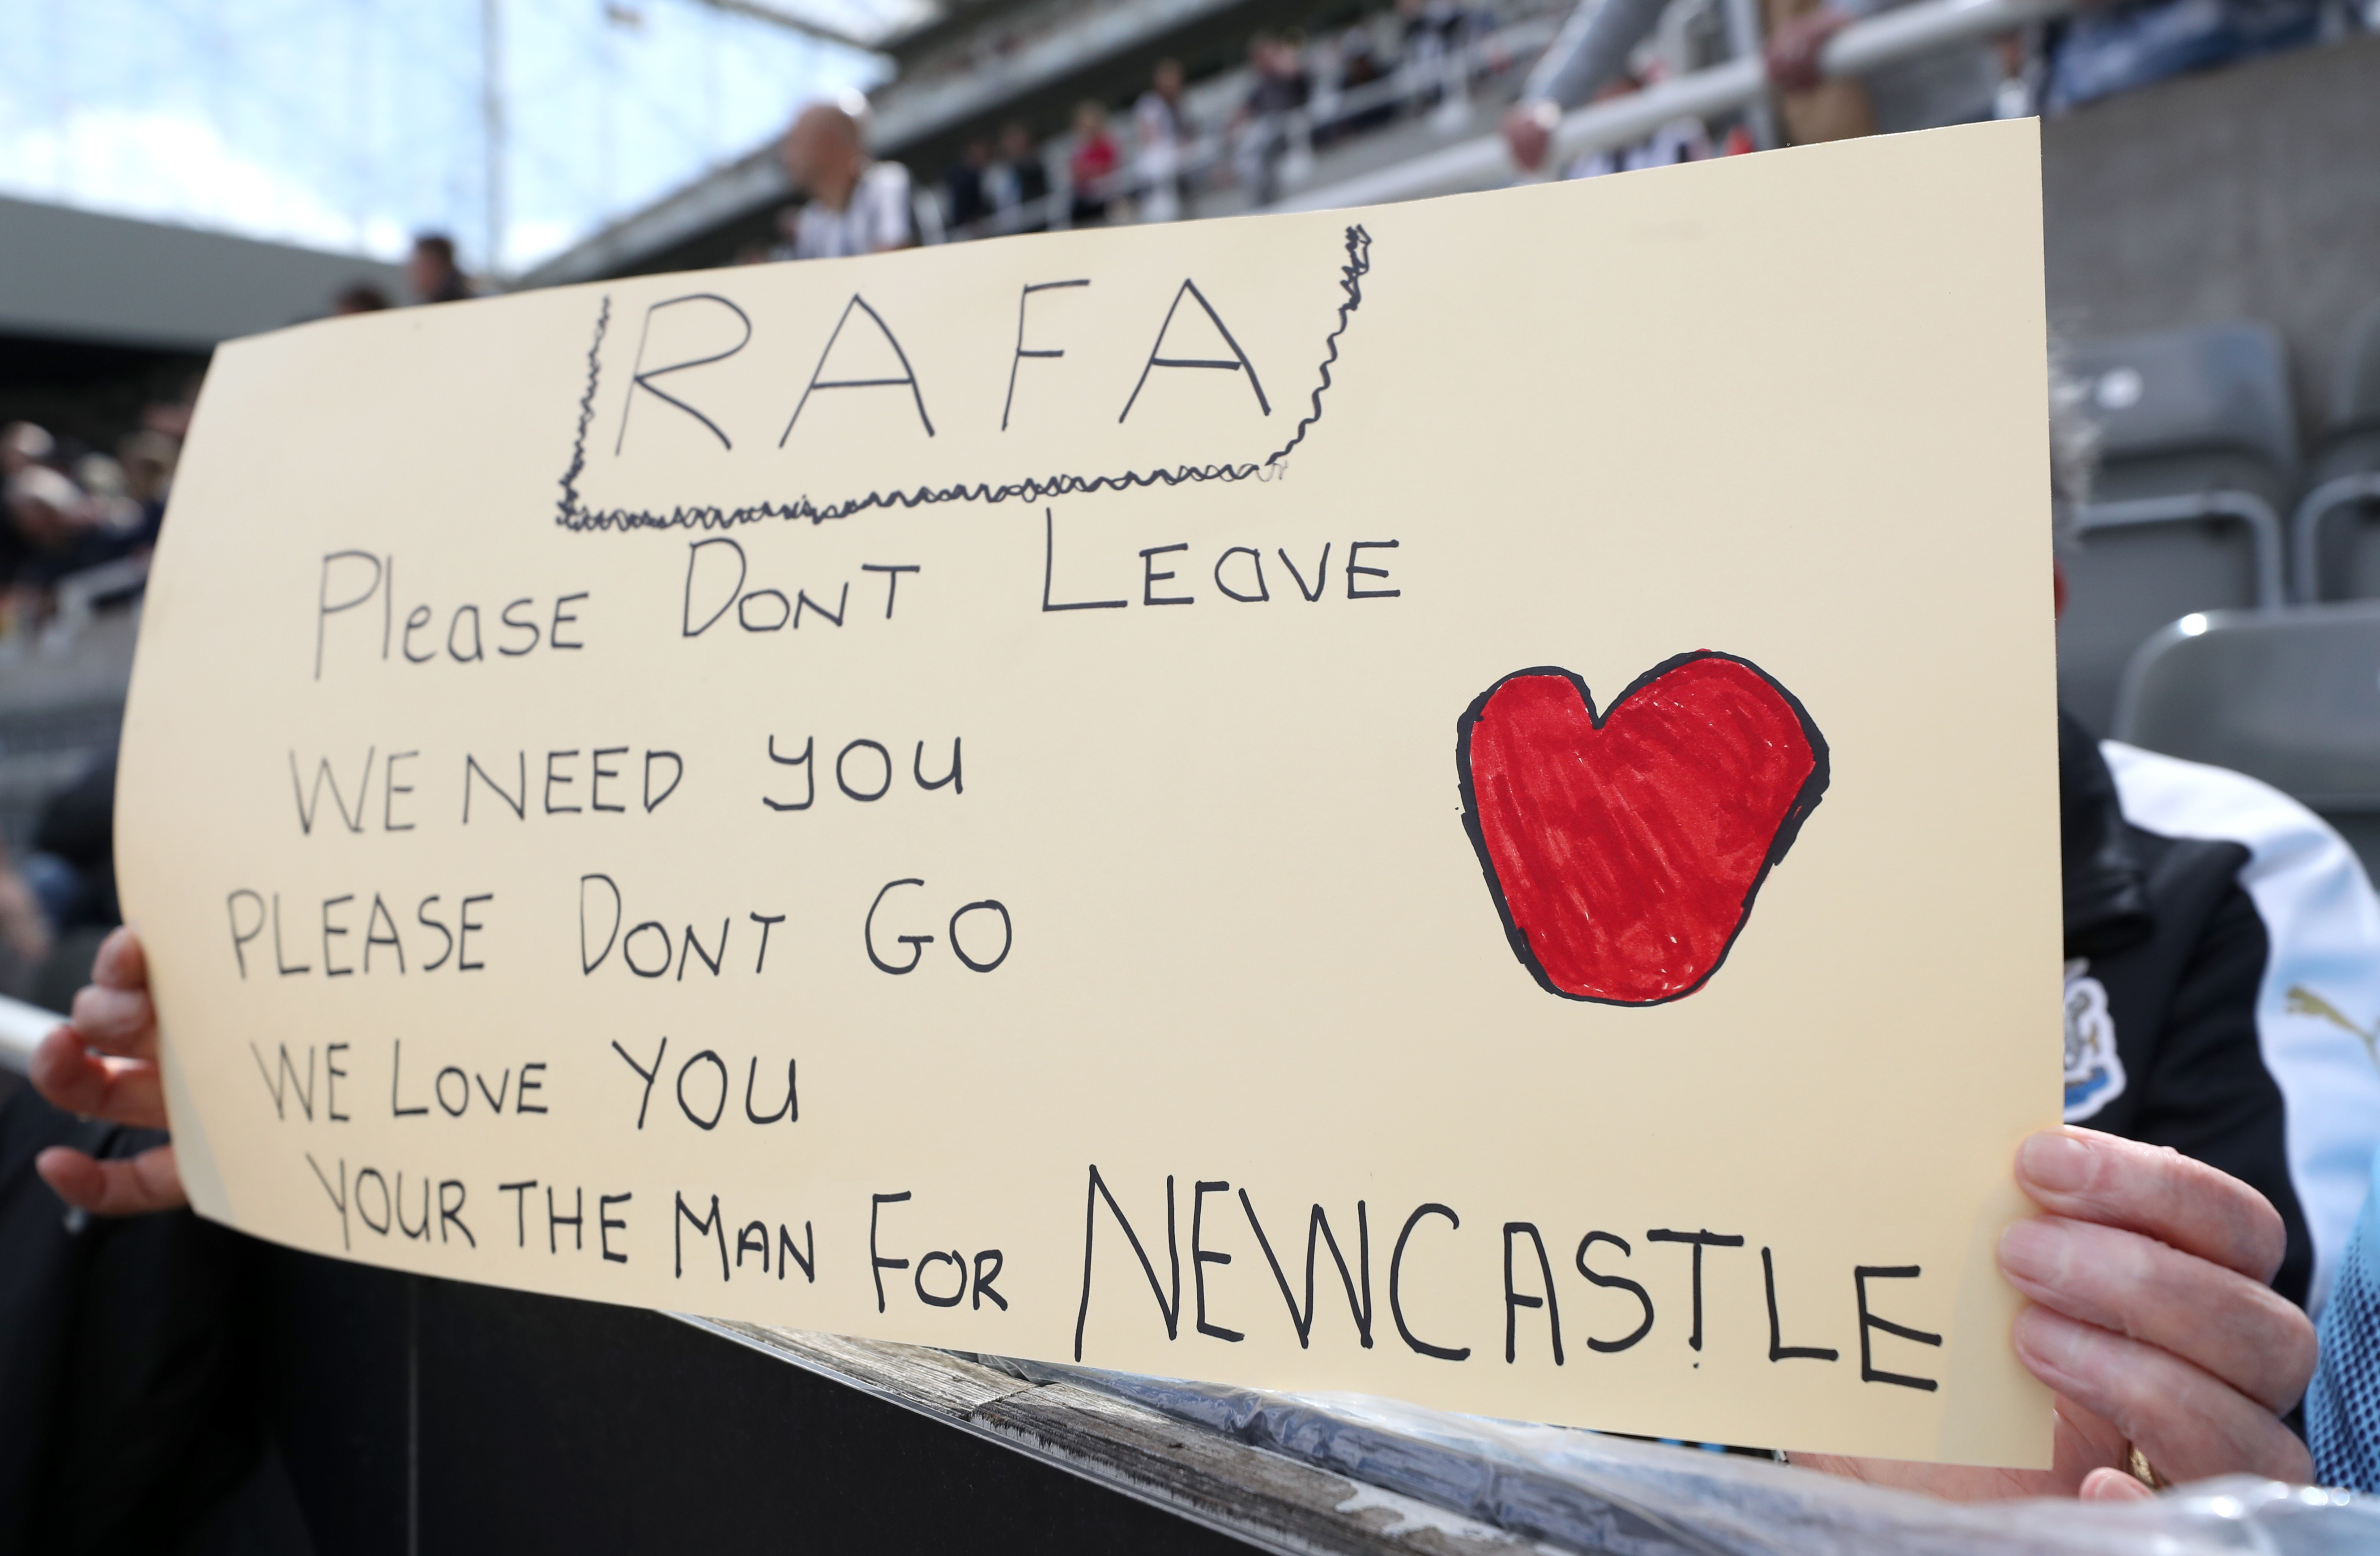 RAFA
Please DONT LEAVE
WE NEED YOU
PLEASE DONT GO
WE LOVE YOU
YOUR THE MAN FOR NEWCASTLE